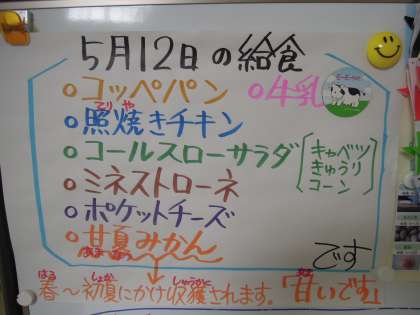 5月12日の給食
○コッペパン ○牛乳
てりや
○照焼きチキン
○コールスローサラダ
キャベツ
きゅうり
コーン
○ミネストローネ
○ポケットチーズ
○甘夏みかん
あまなつ
です
はる しょか しゅうかく あま
春〜初夏にかけ収穫されます。「甘いです」